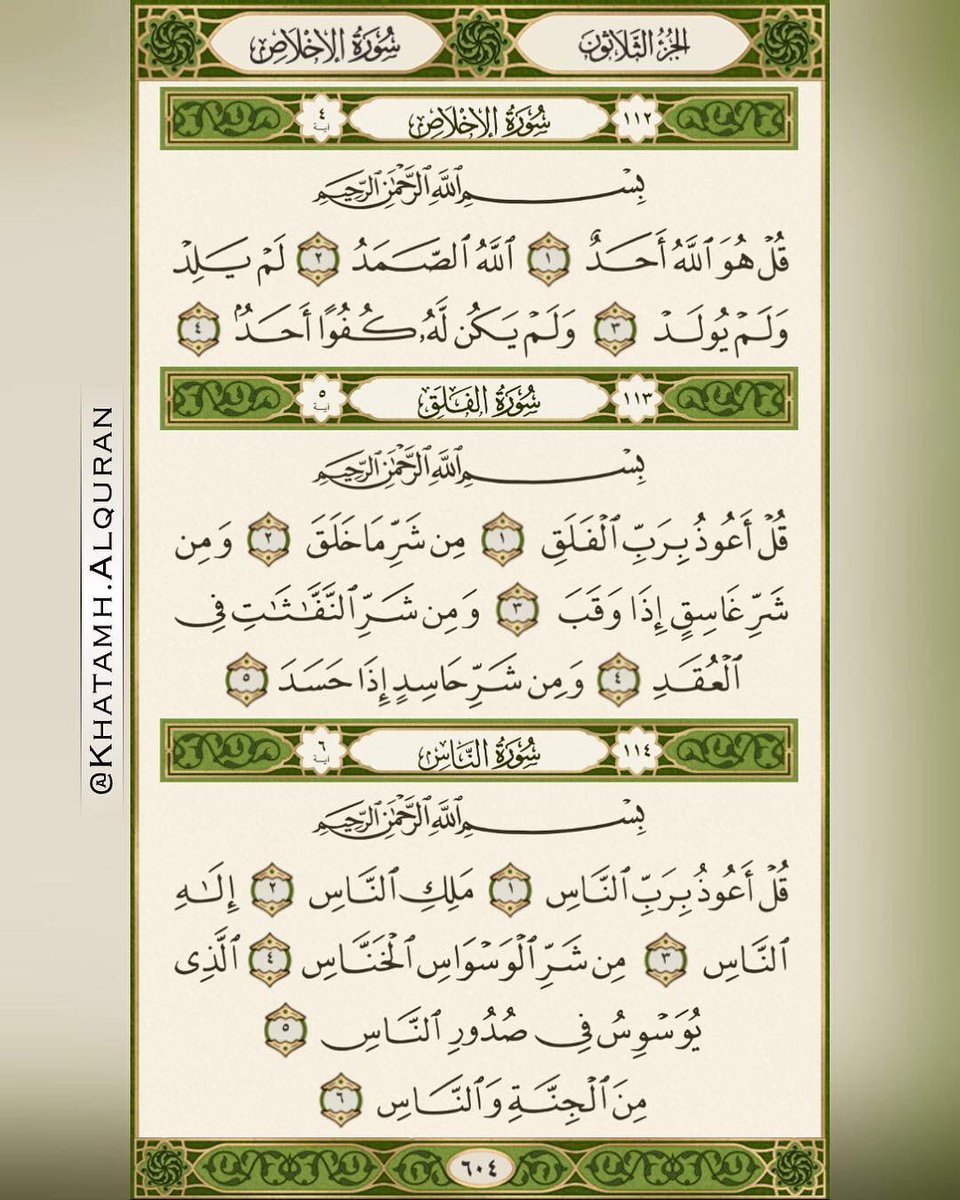 الجزء الثلاثون
سورة الإخلاص
١١٢ سُورَةُ الإِخْلَاصِ ٤ آية
بِسْمِ ٱللَّهِ ٱلرَّحْمَٰنِ ٱلرَّحِيمِ
قُلْ هُوَ ٱللَّهُ أَحَدٌ ١ ٱللَّهُ ٱلصَّمَدُ ٢ لَمْ يَلِدْ
وَلَمْ يُولَدْ ٣ وَلَمْ يَكُن لَّهُۥ كُفُوًا أَحَدٌۢ ٤
١١٣ سُورَةُ الفَلَقِ ٥ آية
بِسْمِ ٱللَّهِ ٱلرَّحْمَٰنِ ٱلرَّحِيمِ
قُلْ أَعُوذُ بِرَبِّ ٱلْفَلَقِ ١ مِن شَرِّ مَا خَلَقَ ٢ وَمِن
شَرِّ غَاسِقٍ إِذَا وَقَبَ ٣ وَمِن شَرِّ ٱلنَّفَّٰثَٰتِ فِى
ٱلْعُقَدِ ٤ وَمِن شَرِّ حَاسِدٍ إِذَا حَسَدَ ٥
١١٤ سُورَةُ النَّاسِ ٦ آية
بِسْمِ ٱللَّهِ ٱلرَّحْمَٰنِ ٱلرَّحِيمِ
قُلْ أَعُوذُ بِرَبِّ ٱلنَّاسِ ١ مَلِكِ ٱلنَّاسِ ٢ إِلَٰهِ
ٱلنَّاسِ ٣ مِن شَرِّ ٱلْوَسْوَاسِ ٱلْخَنَّاسِ ٤ ٱلَّذِى
يُوَسْوِسُ فِى صُدُورِ ٱلنَّاسِ ٥
مِنَ ٱلْجِنَّةِ وَٱلنَّاسِ ٦
٦٠٤
@KHATAMH.ALQURAN